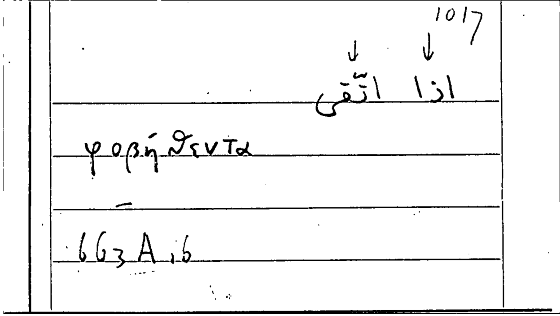 1017
↓ ↓
اذا اتّقى
φοβηθέντα
663 A, 6